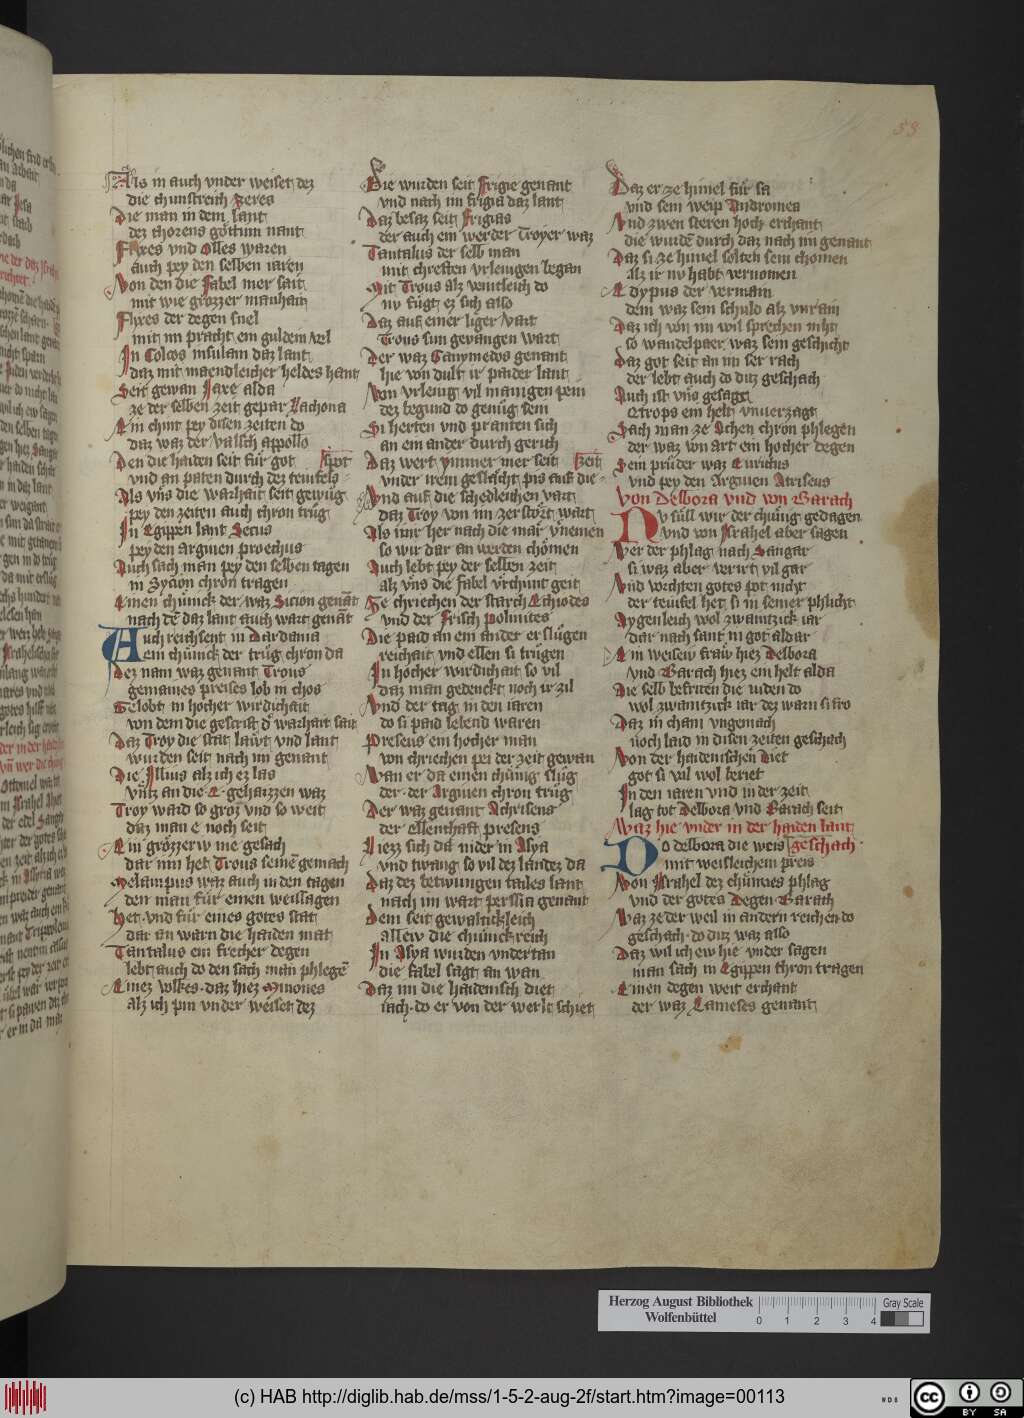 53
Als in auch vnder weiset dez
die chunstreich Zeres
Die man in dem lant
dez chorens gottinn nant
Frixes vnd Olles waren
auch pey den selben iaren
Von den die Fabel mer sait
mit wie grozzer manhait
Frixes der degen snel
mit im pracht ein guldem vel
In Colcos insulam daz lant
daz mit maendleicher heldes hant
Seit gewan Jaxe alda
ze der selben zeit gepar Lachona
Ein chint pey disen zeiten do
daz waz der valsch appollo
Den die haiden seit für got
spot
vnd an paten durch dez teufels
Als vns die warhait seit gewüg
pey den zeiten auch chron trüg
In Egippen lant Secus
pey den Arguien proechus
Auch sach man pey den selben tagen
in Sycion chron tragen
Einen chünick der waz Sicion genāt
nach dē daz lant auch wart genāt
Auch reichsent in Dardania
ein chünick der trüg chron da
Dez nam waz genant Trous
gemaines preises lob in chos
Gelobt in hocher wirdichait
von dem die geschrift d warhait sait
Daz Troy die stat lawt vnd lant
wurden seit nach im genant
Die Illius alz ich ez las
vntz an die E gehaizzen waz
Troy ward so groz vnd so weit
daz man e noch seit
Ein grözzerw nie gesach
dar inn het Trous seinē gemach
Melampus waz auch in den tagen
den man für einen weissagen
Het vnd für eines gotes stat
dar an warn die haiden mat
Tantalus ein frecher degen
lebt auch do den sach man phlegē
Einez volkes daz hiez Minones
alz ich pin vnder weiset dez
Die wurden seit Frigie genant
vnd nach im frigia daz lant
Daz besaz seit Frigias
der auch ein werder Troyer waz
Tantalus der selb man
mit chreften vrleugen began
Mit Trous alz vemtleich do
nv fügt ez sich also
Daz auf einer liger vart
Trous sun gevangen wart
Der waz Ganymedes genant
hie von dult ir paider lant
Von vrleug vil manigen pein
dez begund do genüg sein
Si herten vnd pranten sich
an ein ander durch gerich
Daz wert ymmer mer seit
zeit
vnder irem geslächt pis auf die
Vnd auf die schedleichen vart
daz Troy von im zerstört wart
Als innr her nach die mär vnemen
so wir dar an werden chömen
Auch lebt pey der selben zeit
alz vns die fabel vrchunt geit
Ze chriechen der starch Echiodes
vnd der Frisch polinites
Die paid an ein ander er slügen
reichait vnd ellen si trügen
In hocher wirdichait so vil
daz man gedenckt noch ir zil
Vnd der tag in den iaren
do si paid lebend waren
Perseus ein hocher man
von chriechen pei der zeit gewan
Wan er da einen chünig slüg
der der Arguien chron trüg
Der waz genant Achrisens
der ellenthaft perseus
Liezz sich da nider in Asya
vnd twang so vil dez landez da
Daz dez betwungen tailes lant
nach im wart perssia genant
Dem seit gewaltickleich
allew die chünckreich
In Asya wurden vndertan
die fabel sagt an wan
Daz im die haidenisch diet
iach do er von der werlt schiet
Daz er ze himel für sa
vnd sein weip Andromea
Vnd zwen steren hoch erchant
die wurdē durch daz nach im genant
Daz si ze himel solten sein chömen
alz ir nv habt vernomen
Edypus der vermain
dem waz sein schuld alz vnrain
Daz ich von im wil sprechen niht
so wandelpaer waz sein geschicht
Daz got seit an im ser rach
der lebt auch do ditz geschach
Auch ist vns gesagt
Cetrops ein helt vnuerzagt
Sach man ze Athen chron phlegen
der waz von art ein hocher degen
Sein prüder waz Eurichs
vnd pey den Arguien Atriseus
Von Delbora vnd von Barach
Nv süll wir der chüng gedagen
vnd von Israhel aber sagen
Wer der phlag nach Sangar
si waz aber verirt vil gar
Vnd vorchten gotes pot nicht
der teufel het si in seiner phlicht
Aygenleich wol zwaintzick iar
dar nach sant in got aldar
Ein weisew fraw hiez Delbora
vnd Barach hiez ein helt alda
Die selb befriten die iuden do
wol zwaintzick iar dez warn si fro
Daz in chain vngemach
noch laid in disen zeiten geschach
Von der haidenischen Diet
got si vil wol beriet
In den iaren vnd in der zeit
lag tot Delbora vnd Barach seit
Waz hie vnder in der haiden lant
geschach
Do delbora die weis
mit weisleichem preis
Von Israhel dez chünnes phlag
vnd der gotes Degen Barach
Waz ze der weil in andern reichen do
geschach do ditz waz also
Daz wil ich ew hie vnder sagen
man sach in Egippen chron tragen
Einen degen weit erchant
der waz Lameses genant
Herzog August Bibliothek
Wolfenbüttel
0 1 2 3 4
Gray Scale
(c) HAB http://diglib.hab.de/mss/1-5-2-aug-2f/start.htm?image=00113
WDB
cc BY SA